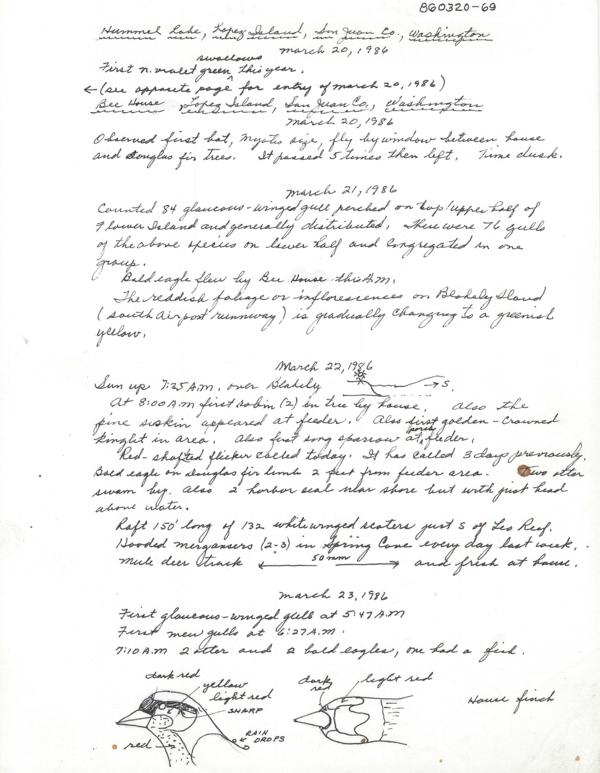 860320-69
Hummel Lake, Lopez Island, San Juan Co., Washington
March 20, 1986
swallows
First n. violet green ^ this year.
← (see opposite page for entry of March 20, 1986)
Bee House Lopez Island, San Juan Co., Washington
March 20, 1986
Observed first bat, Myotis size, fly by window between house
and Douglas fir trees. It passed 5 times then left. Time dusk.
March 21, 1986
Counted 84 glaucous-winged gull perched on top/upper half of
Flower Island and generally distributed. There were 76 gulls
of the above species on lower half and congregated in one
group.
Bald eagle flew by Bee House this A.M.
The reddish foliage or inflorescences on Blakely Island
(south airport runway) is gradually changing to a greenish
yellow.
March 22, 1986
Sun up 7:25 A.M. over Blakely → S.
At 8:00 A.M first robin (2) in tree by house. Also the
pine siskin appeared at feeder. Also first golden-crowned
kinglet in area. Also first song sparrow at feeder.
Red-shafted flicker called today. It has called 3 days previously.
Bald eagle on Douglas fir limb 2 feet from feeder area. Two otter
swam by. Also 2 harbor seal near shore but with just head
above water.
Raft 150' long of 132 whitewinged scoters just S of Leo Reef.
Hooded mergansers (2-3) in Spring Cove every day last week.
Mule deer track ← 50mm → and fresh at house.
March 23, 1986
First glaucous-winged gull at 5:47 A.M
First mew gulls at 6:27 A.M.
7:10 A.M 2 otter and 2 bald eagles, one had a fish.
dark red
yellow
light red
SHARP
RAIN DROPS
red
dark red
light red
House finch